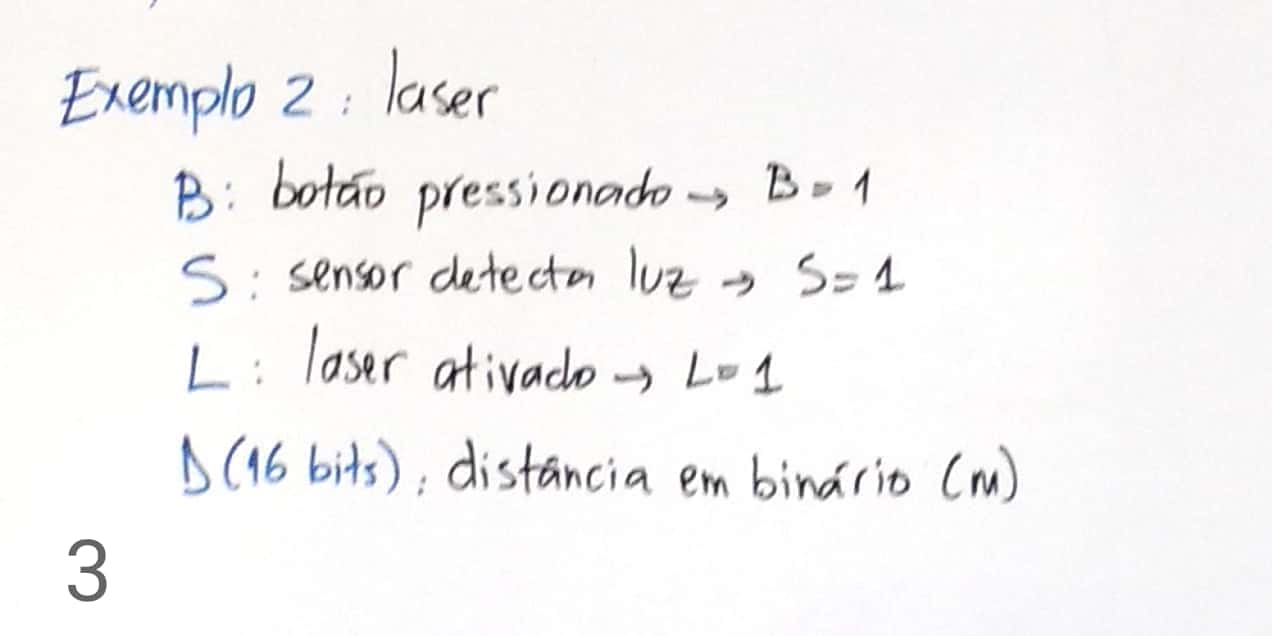 Exemplo 2: laser
B: botão pressionado → B=1
S: sensor detecta luz → S=1
L: laser ativado → L=1
D (16 bits): distância em binário (m)
3